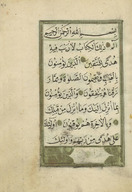 بسم الله الرحمن الرحيم
الم ذلك الكتاب لا ريب فيه
هدى للمتقين الذين يؤمنون
بالغيب ويقيمون الصلوة
ومما رزقناهم ينفقون
والذين يؤمنون
بما انزل اليك وما انزل من قبلك
وبالآخرة هم يوقنون
اولئك على هدى من ربهم واولئك